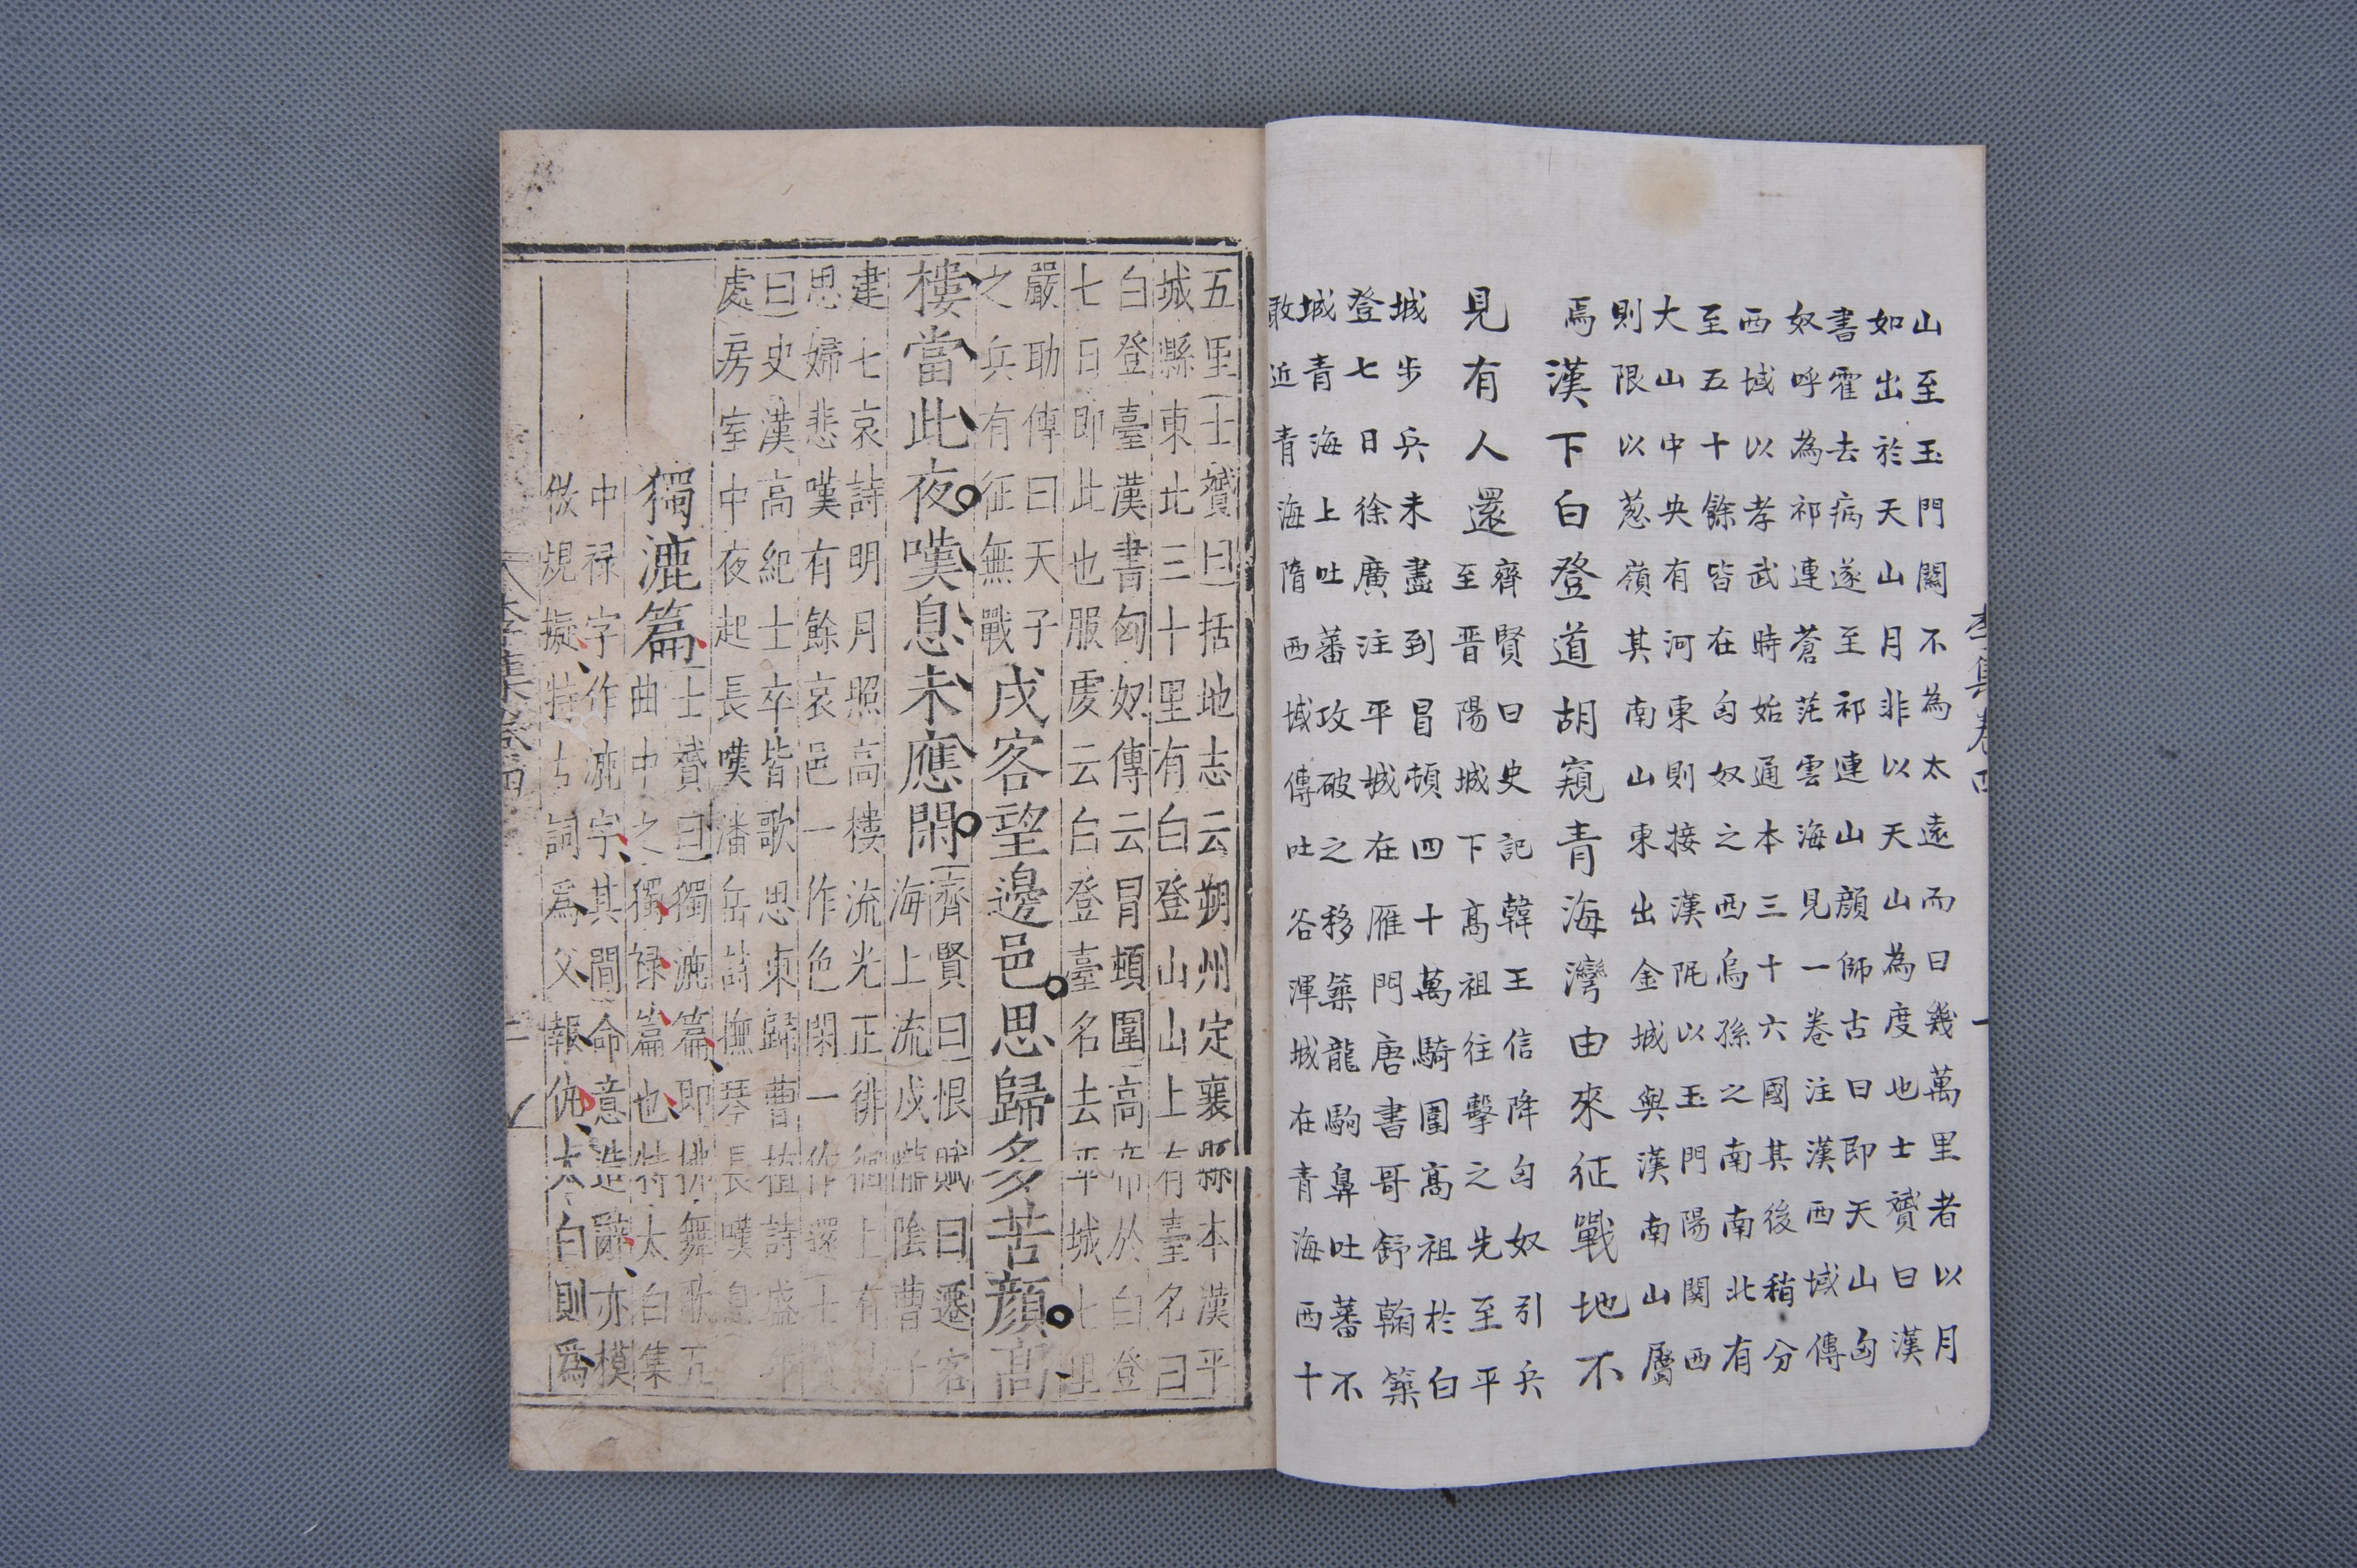 李集卷四 一
山至玉門關不為太遠而曰幾萬里者以月
如出於天山月非以天山為度也士贇曰漢
書霍去病遂至祁連山顔師古曰即天山匈
奴呼為祁連蒼茫雲海見一卷注漢西域傳
西域以孝武時始通本三十六國其後稍分
至五十餘皆在匈奴之西烏孫之南南北有
大山中央有河東則接漢阸以玉門陽関西
則限以葱嶺其南山東出金城與漢南山屬
焉漢下白登道胡窺青海灣由來征戰地不
見有人還
齊賢曰史記韓王信降匈奴引兵
至晋陽城下高祖往擊之先至平
城步兵未盡到冒頓四十萬騎圍高祖於白
登七日徐廣注平城在雁門唐書哥舒翰築
城青海上吐蕃攻破之移築龍駒鼻吐蕃不
敢近青海隋西域傳吐谷渾城在青海西十
五里士贇曰括地志云朔州定襄縣本漢平
城縣東北三十里有白登山山上有臺名曰
白登臺漢書匈奴傳云冒頓圍高帝於白登
七日即此也服虔云白登臺名去平城七里
嚴助傳曰天子
之兵有征無戰
戍客望邊邑思歸多苦顔高
樓當此夜嘆息未應閑
齊賢曰恨賦曰遷客
海上流戍隴陰曹子
建七哀詩明月照高樓流光正徘徊上有
思婦悲嘆有餘哀邑一作色閑一作還士
曰史漢高紀士卒皆歌思東歸曹植詩盛年
處房室中夜起長嘆潘岳詩撫琴長嘆息
獨漉篇
士贇曰獨漉篇即拂舞歌五
曲中之獨禄篇也特太白集
中禄字作漉字其間命意造辭亦模
倣規擬特古詞爲父報仇太白則爲
李集卷四 二